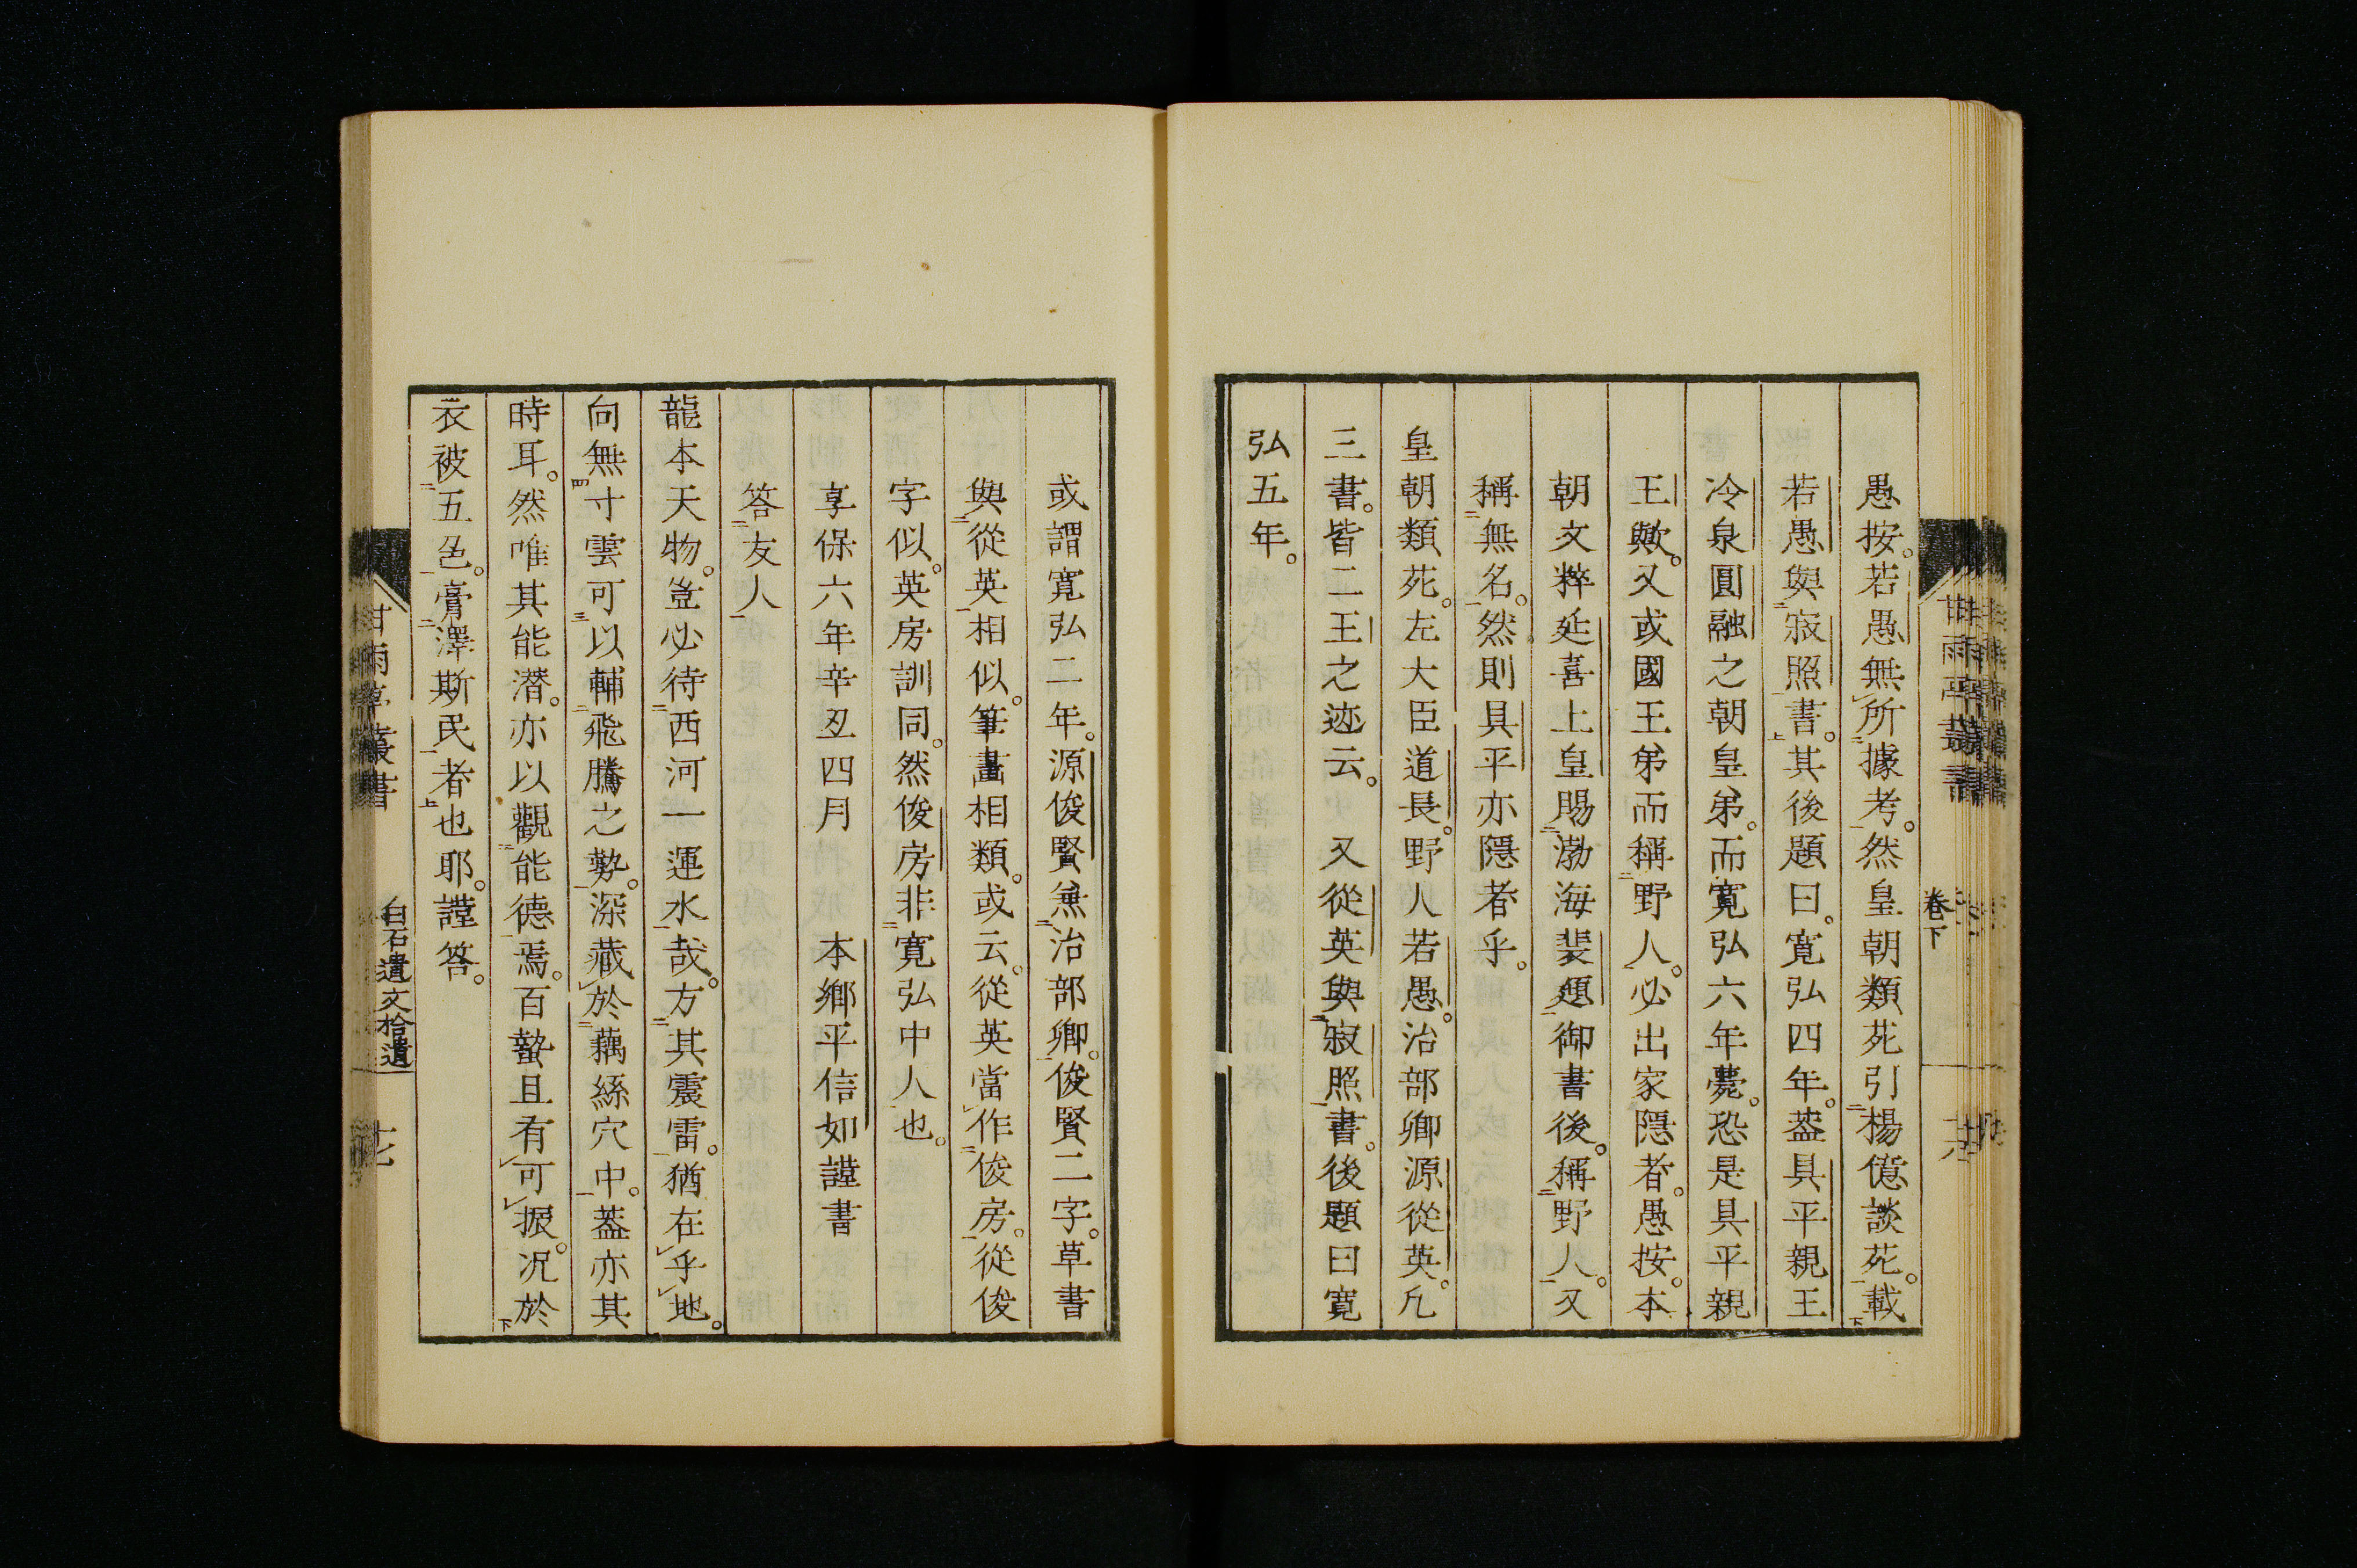 愚按。若愚無所據考。然皇朝類苑引楊億談苑。載
若愚與寂照書。其後題曰。寬弘四年。蓋具平親王
冷泉圓融之朝皇弟。而寬弘六年薨。恐是具平親
王歟。又或國王弟而稱野人。必出家隱者。愚按。本
朝文粹延喜上皇賜渤海裴遡御書後。稱野人。又
稱無名。然則具平亦隱者乎。
皇朝類苑。左大臣道長。野人若愚。治部卿源從英。凡
三書。皆二王之迹云。　又從英與寂照書。後題曰寬
弘五年。
卷下
或謂寬弘二年。源俊賢兼治部卿。俊賢二字。草書
與從英相似。筆畵相類。或云。從英當作俊房。從俊
字似。英房訓同。然俊房非寬弘中人也。
享保六年辛丑四月　　本鄉平信如謹書
答友人
龍本天物。豈必待西河一運水哉。方其震雷。猶在乎地。
向無寸雲可以輔飛騰之勢。深藏於藕絲穴中。蓋亦其
時耳。然唯其能潛。亦以觀能德焉。百蟄且有可振。況於
衣被五色。膏澤斯民者也耶。謹答。
白石遺文拾遺